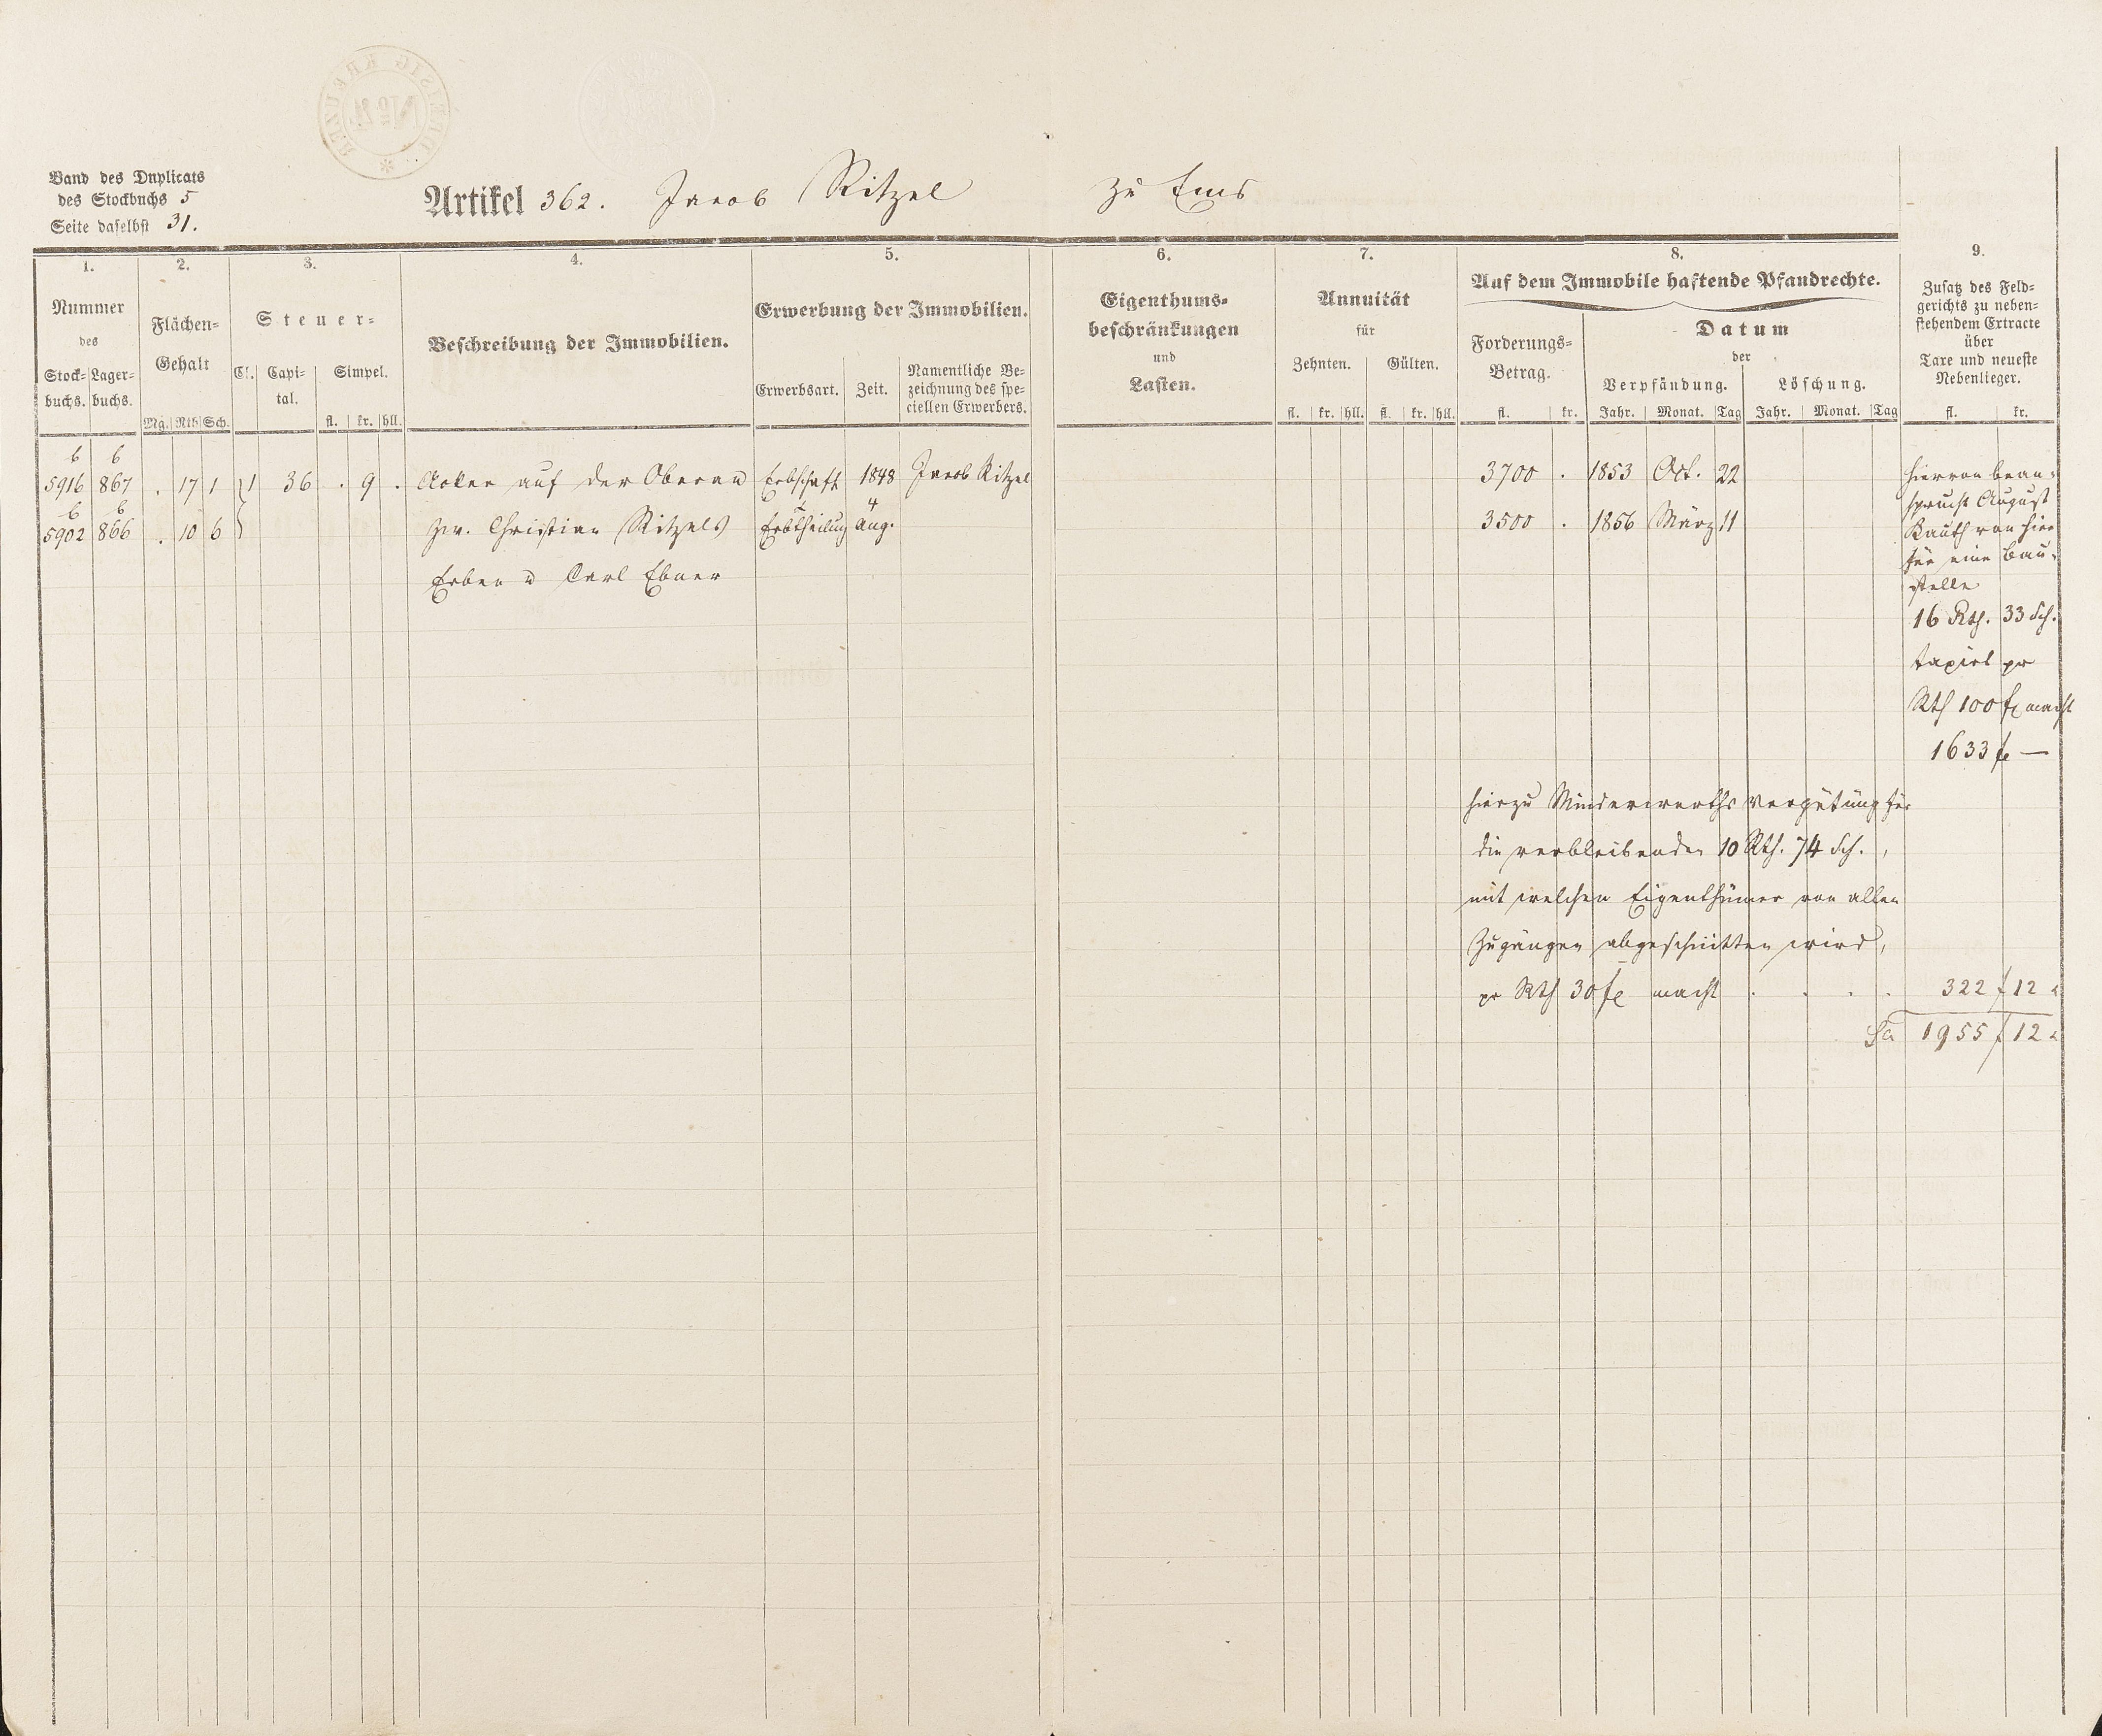 Band des Duplicats
des Stockbuchs 5
Seite daselbst 31.
Artikel 362. Jacob Ritzel zu Ems
1. 2. 3. 4. 5. 6. 7. 8. 9.
Nummer
des
Stock- Lager-
buchs. buchs.
Flächen-
Gehalt
Mg. Rth Sch.
Steuer-
Cl. Capi-
tal.
Simpel.
fl. kr. hll.
Beschreibung der Immobilien.
Erwerbung der Immobilien.
Erwerbsart. Zeit.
Namentliche Be-
zeichnung des spe-
ciellen Erwerbers.
Eigenthums-
beschränkungen
und
Lasten.
Annuität
für
Zehnten. Gülten.
fl. kr. hll. fl. kr. hll.
Auf dem Immobile haftende Pfandrechte.
Forderungs-
Betrag.
fl. kr.
Datum
der
Verpfändung. Löschung.
Jahr. Monat. Tag Jahr. Monat. Tag
Zusatz des Feld-
gerichts zu neben-
stehendem Extracte
über
Taxe und neueste
Nebenlieger.
fl. kr.
b b
5916 867 . 17 1 1 36 . 9 . Acker auf der Oberau Erbschaft 1848 Jacob Ritzel 3700 . 1853 Oct. 22
b b
5902 866 . 10 6 zw. Christian Ritzels Erbtheilung 4 Aug. 3500 . 1856 März 11
Erben u Carl Ebner
hiervon bean-
sprucht August
Bauth von hier
für eine Bau-
stelle
16 Rth. 33 Sch.
taxirt pr
Rth 100 fl macht
1633 fl —
hierzu Minderwerths Vergütung für
die verbleibenden 10 Rth. 74 Sch.,
mit welchen Eigenthümer von allen
Zugängen abgeschnitten wird,
pr Rth 30 fl macht . . . . 322 f 12 x
Sa 1955 f 12 x